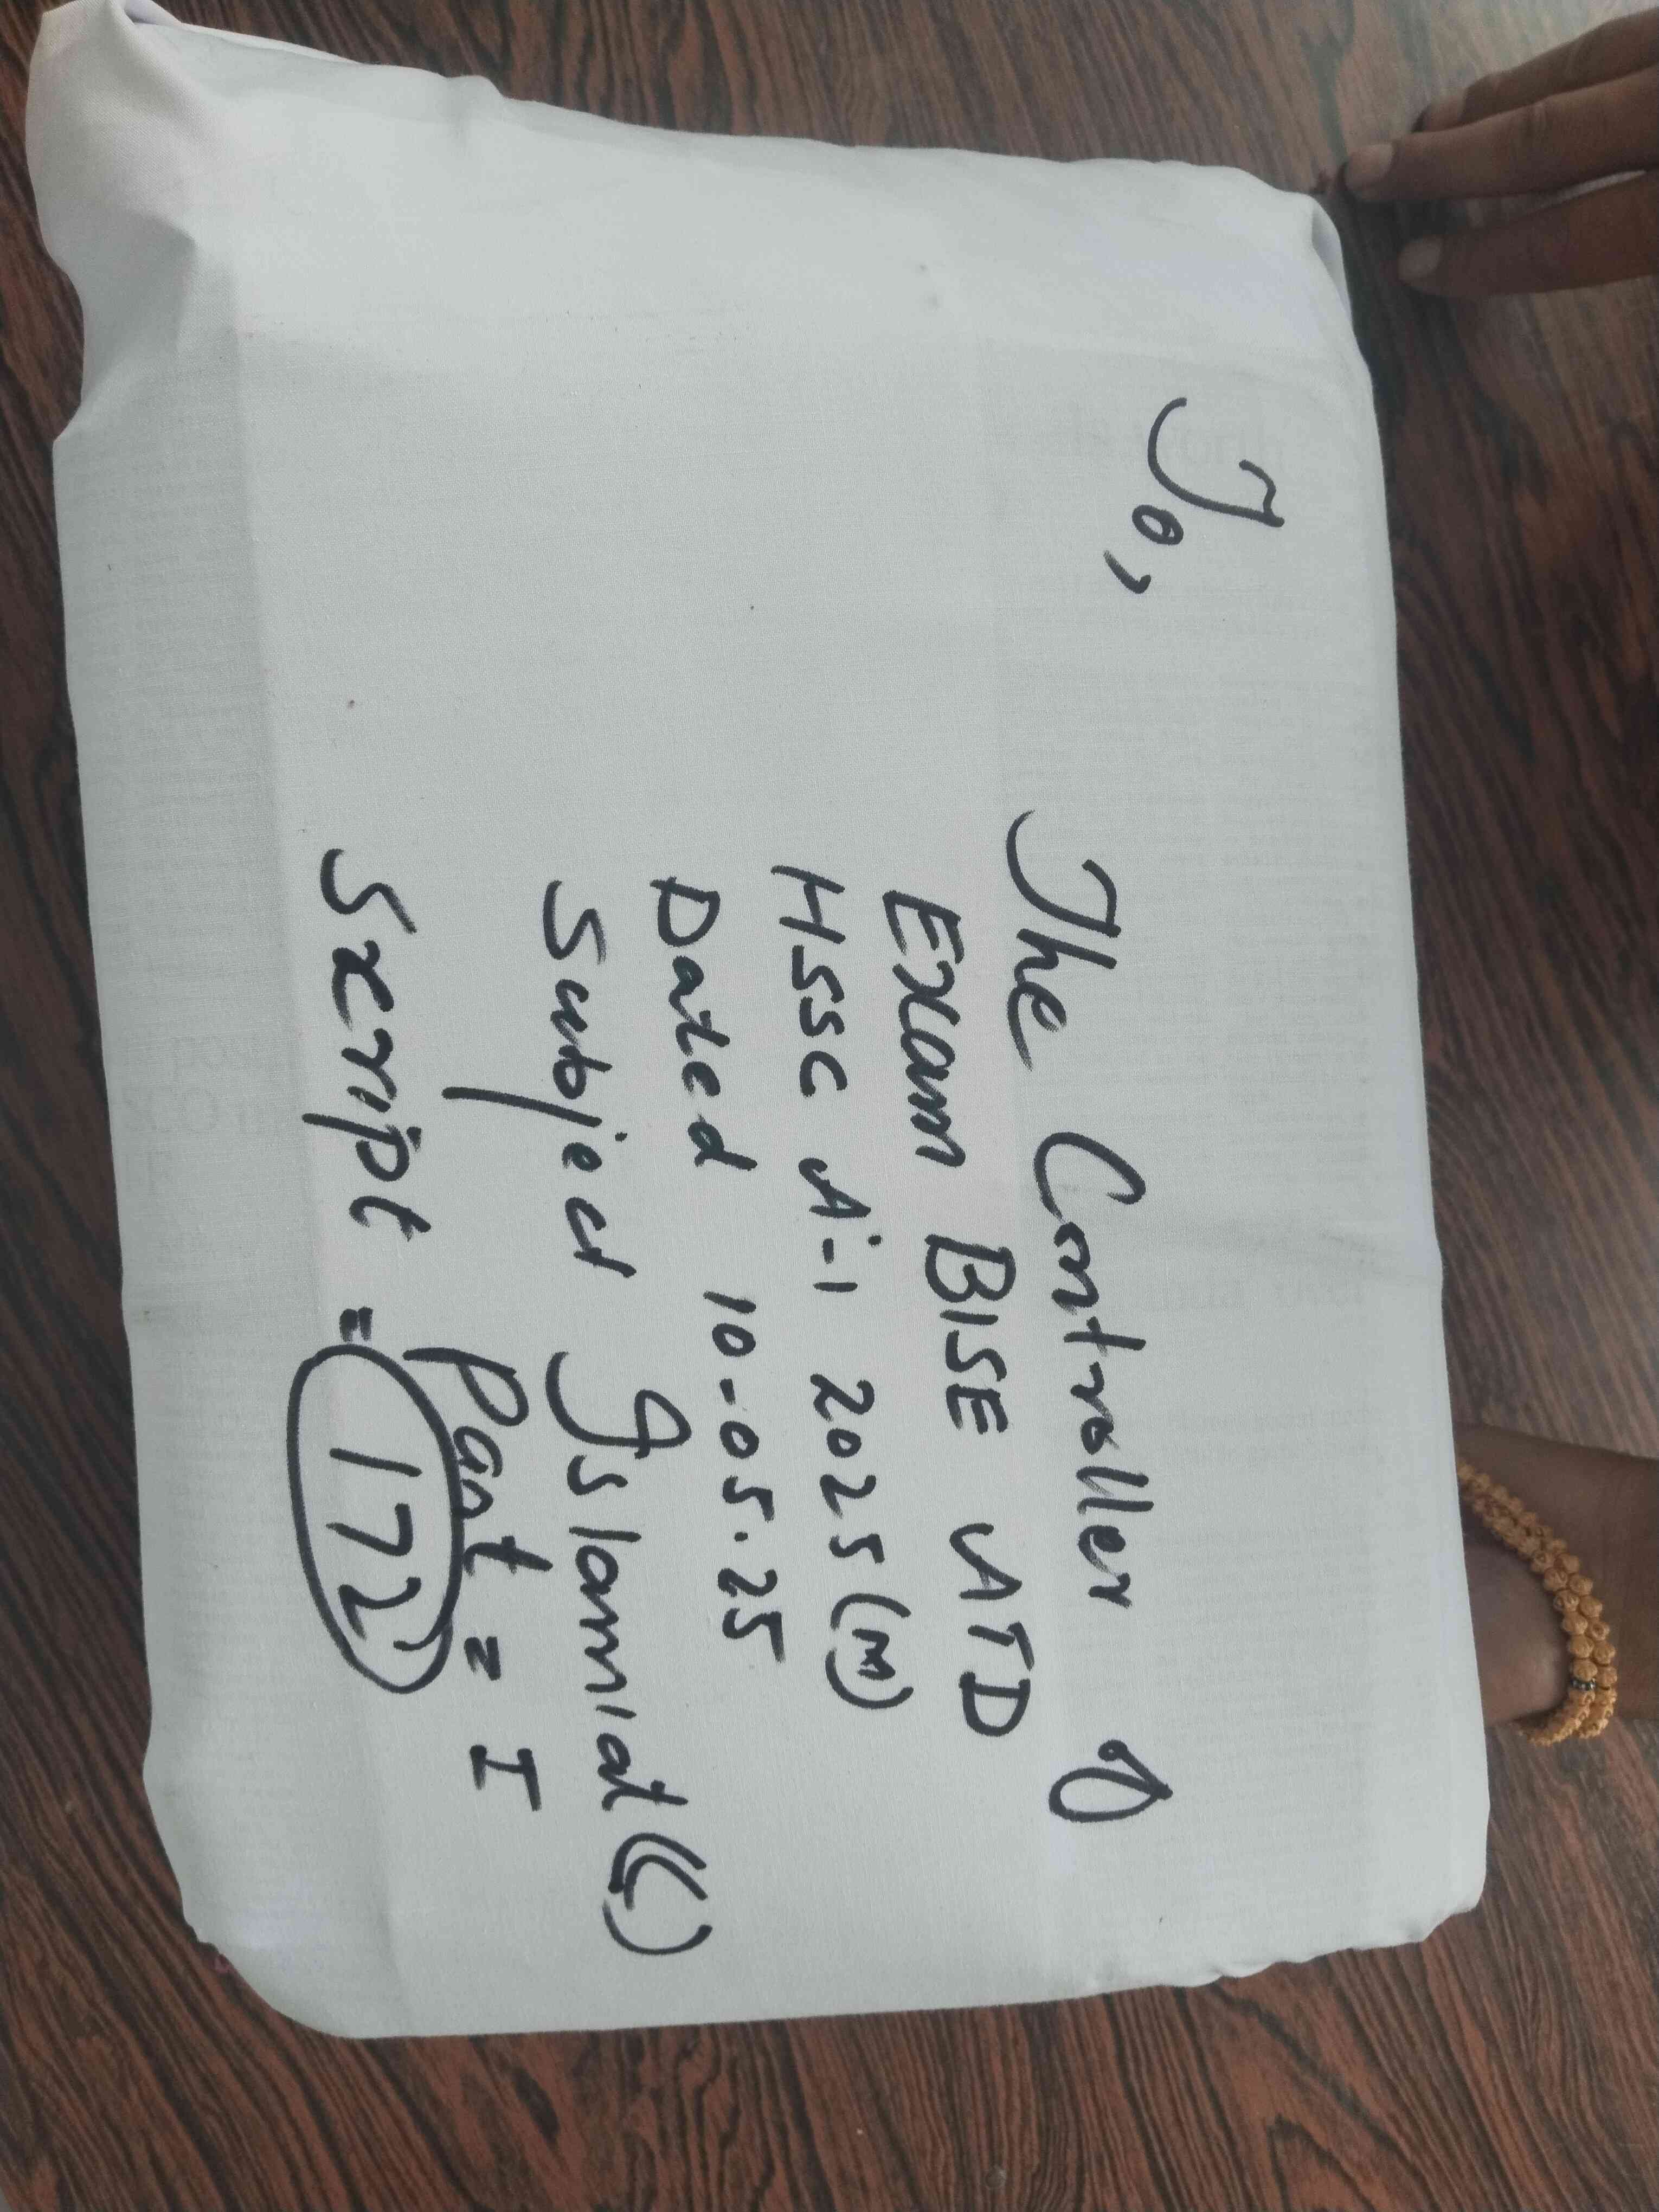 To,
The Controller of
Exam BISE ATD
HSSC A-1 2025 (M)
Dated 10-05.25
Subject Islamiat (C)
Part = I
Script = 172